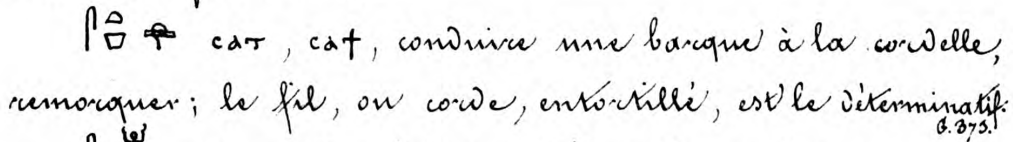 ⲥⲁⲧ, ⲥⲁϯ, conduire une barque à la cordelle,
remorquer; le fil, ou corde, entortillé, est le déterminatif.
G. 373.